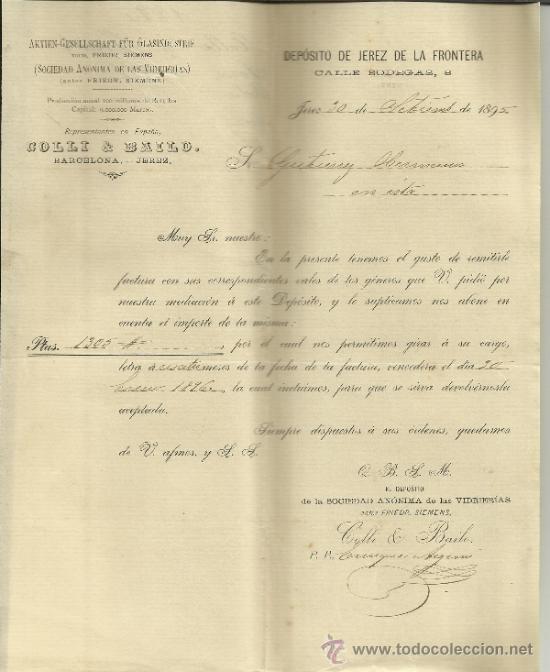 AKTIEN-GESELLSCHAFT FÜR GLASINDUSTRIE
vorm. FRIEDR. SIEMENS
(SOCIEDAD ANÓNIMA DE LAS VIDRIERÍAS)
(antes FRIEDR. SIEMENS)
Producción anual 100 millones de botellas
Capital: 9.000.000 Marcos.
Representantes en España,
COLLI & BAILO.
BARCELONA, - JEREZ,
DEPÓSITO DE JEREZ DE LA FRONTERA
CALLE BODEGAS, 8
Jerez 20 de Octubre de 1895
S. Gutierrez Hermanos
en esta
Muy Sr. nuestro:
En la presente tenemos el gusto de remitirle
factura con sus correspondientes vales de los géneros que V. pidió por
nuestra mediación á este Depósito, y le suplicamos nos abone en
cuenta el importe de la misma:
Ptas. 1305 por el cual nos permitimos girar á su cargo,
letra á meses de la fecha de la factura, vencedera el dia 20
1896 la cual incluimos, para que se sirva devolvérnosla
aceptada.
Siempre dispuestos á sus órdenes, quedamos
de V. afmos. y S. S.
Q. B. S. M.
EL DEPÓSITO
de la SOCIEDAD ANÓNIMA de las VIDRIERÍAS
antes FRIEDR. SIEMENS,
Colli & Bailo.
P. P.
www.todocoleccion.net